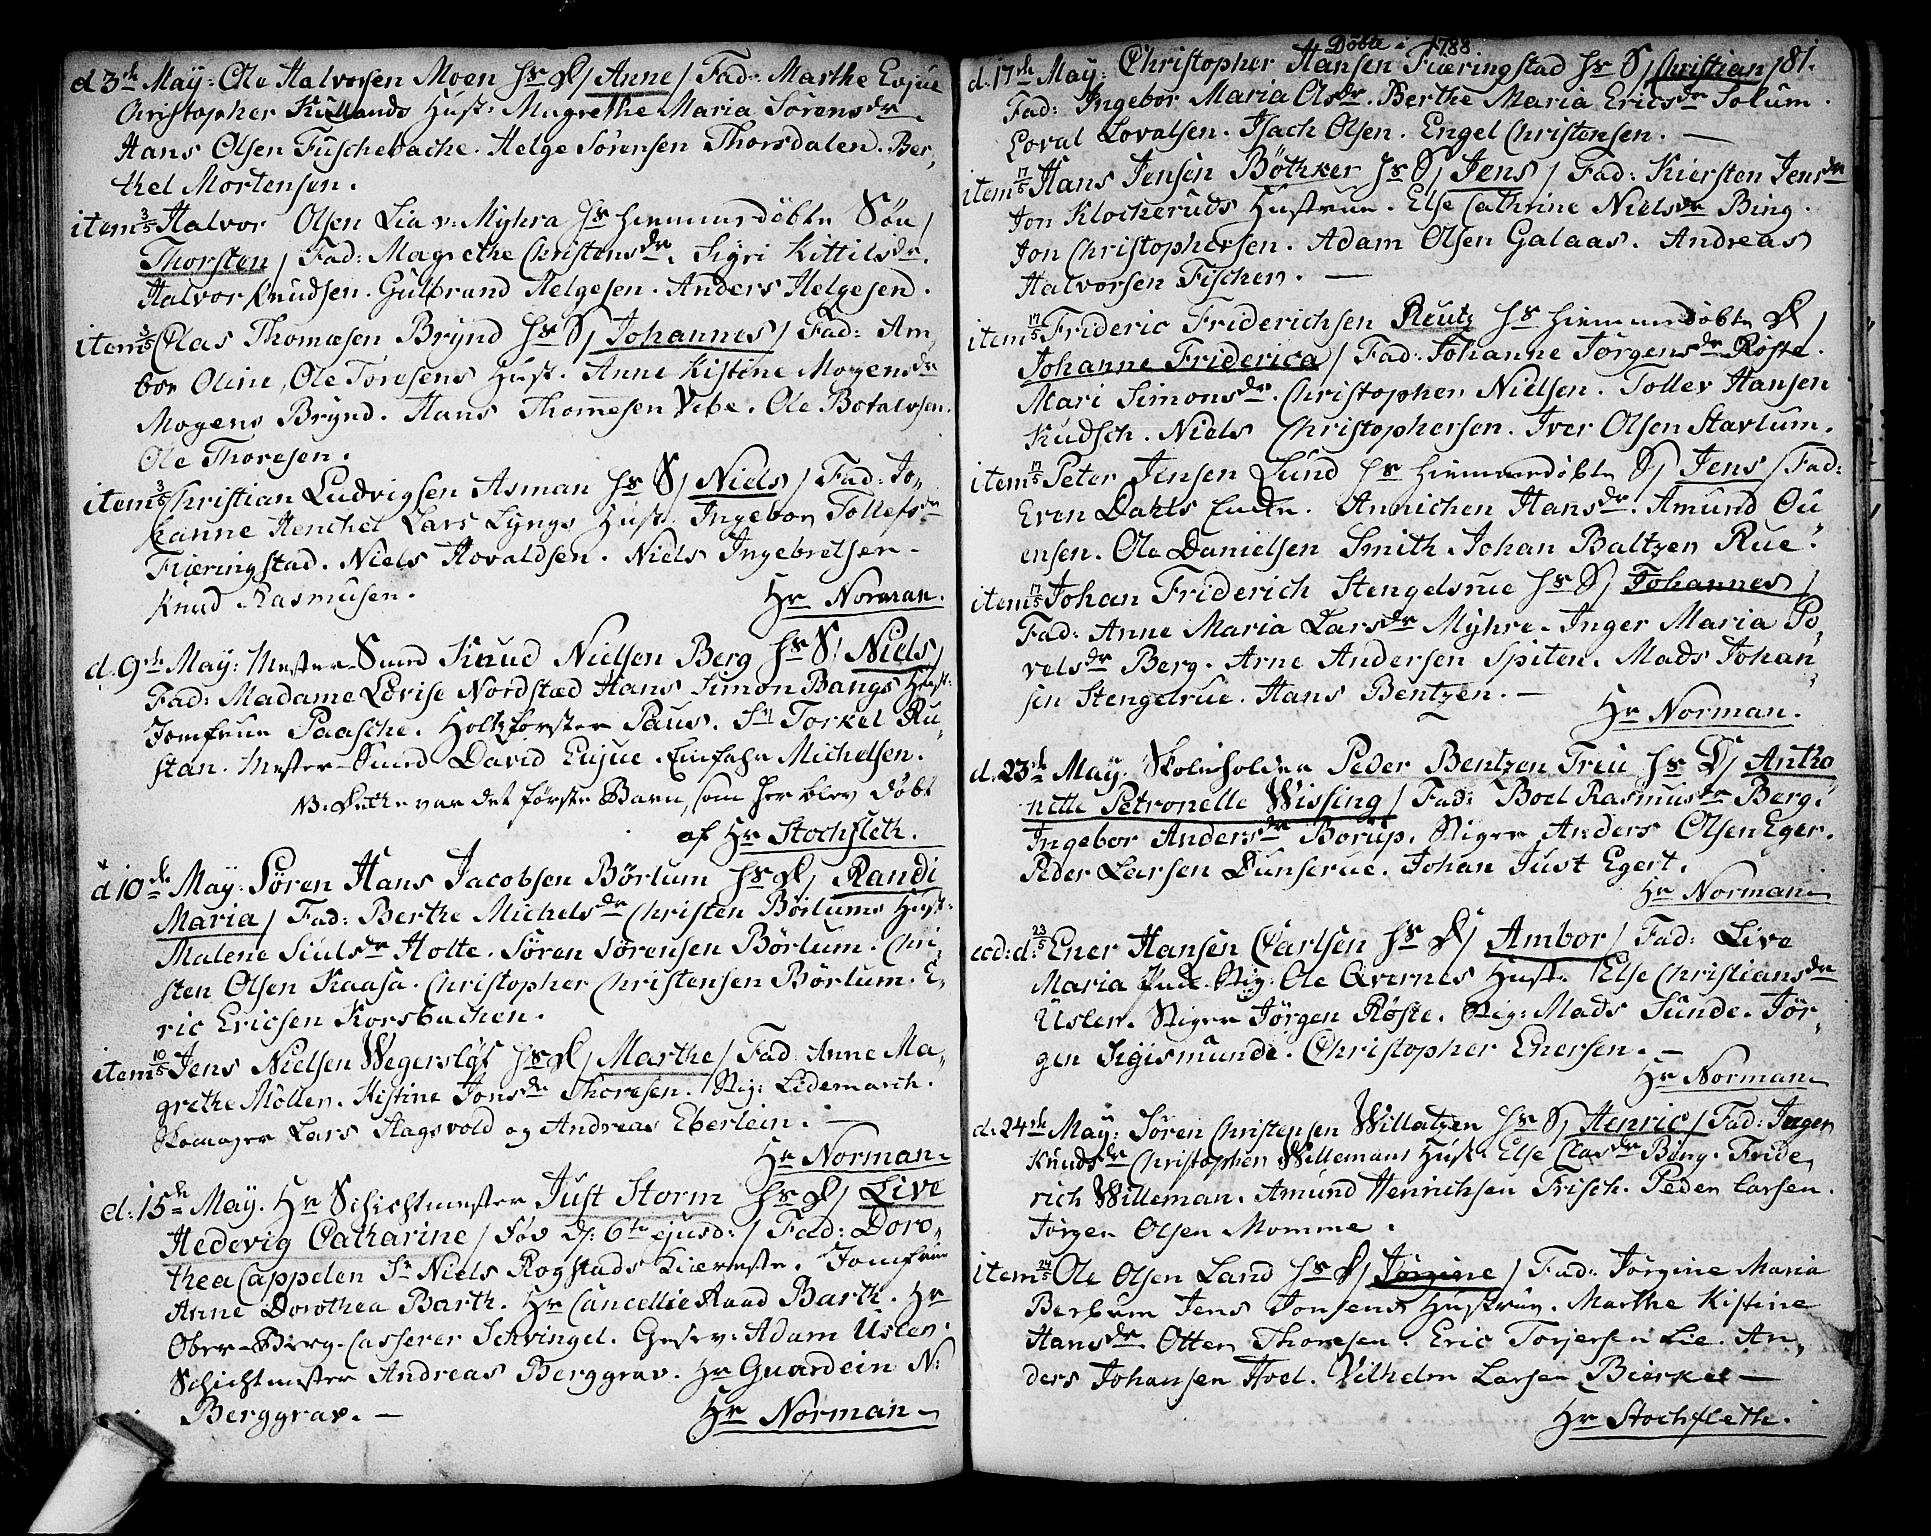 d 3de May: Ole Halvorsen Moen Hs D/ Anne/ Fad: Marthe Evjue
Christopher Hust: Magrethe Maria Sørensdr
Hans Olsen Fuschebache. Helge Sørensen Thorsdalen. Ber,
thel Mortensen.
item 3/5 Halvor Olsen Lia v: Myhra Hs hiemmedöbte Søn/
Thorsten/ Fad: Magrethe Christensdr. Sigri Kittilsdr.
Halvor Knudsen. Gulbrand Helgesen. Anders Helgesen.
item 3/5 Clas Thomæsen Brynd Hs S/ Johannes/ Fad: Am,
bor Oline, Ole Toresens Hust. Anne Kistine Mogensdr
Mogens Brynd. Hans Thomesen Vebe. Ole Botalvsen.
Ole Thoresen.
item 3/5 Christian Ludvigsen Asman Hs S/ Niels/ Fad: Jo-
hanne Henchel Lars Lyngs Hust. Ingebor Tollefsdr
Fiæringstad. Niels Hovaldsen. Niels Ingebretsen.
Knud Rasmusen.
Hr Norman.
d. 9de May: Mester-Svend Knud Nielsen Berg Hs S/ Niels/
Fad: Madame Lovise Nordstæd Hans Simon Bangs Hust:
Jomfrue Paasche. Holtzförster Paus. Sr Torkel Ru-
stan. Mester-Svend David Evjue. Michelsen.
NB. Dette var det første Barn, som her blev döbt
af Hr Stochfleth.
d 10de May: Søren Hans Jacobsen Börtum Hs D/ Randi
Maria/ Fad: Berthe Michelsdr Christen Börtums Hust:
Malene Siulsdr Holte. Søren Sørensen Börtum. Chri-
sten Olsen Kaasa. Christopher Christensen Börtum. E-
ric Ericsen Korsbachen.
item 10/5 Jens Nielsen Wegersløf Hs D/ Marthe/ Fad: Anne Ma-
grethe Möller. Kistine Jonsdr Thoresen. Stig: Lidemarch.
Skomager Lars Hagsvold og Andreas Eberlein. —
Hr Norman.
d: 15de May. Hr Schichtmester Just Storm Hs D/ Live
Hedevig Catharine/ föd d: 6te ejusd:/ Fad: Doro-
thea Cappelen Sr Niels Rogstads Kiæreste. Jomfrue
Anne Dorothea Barth. Hr Cancellie Raad Barth. Hr
Ober-Berg-Casserer Schvingel. Geschv: Adam Uslen.
Schichtmester Andreas Berggrav. Hr Guardein N:
Berggrav. —
Hr Norman
Döbte i 1788
81.
d. 17de May: Christopher Hansen Fiæringstad Hs S/ Christian/
Fad: Ingebor Maria Olsdr. Berthe Maria Ericsdr Solum.
Loval Lovalsen. Isach Olsen. Engel Christensen. —
item 17/5 Hans Jensen Böthker Hs S/ Jens/ Fad: Kiersten Jensdr
Jon Klocheruds Hustrue. Else Cathrine Nielsdr Bing.
Jon Christophersen. Adam Olsen Galaas. Andreas
Halvorsen Fischer. —
item 17/5 Frideric Friderichsen Reutz Hs hiemmedöbte D/
Johanne Friderica/ Fad: Johanne Jørgensdr Røste.
Mari Simonsdr. Christopher Nielsen. Tollev Hansen
Kudsch. Niels Christophersen. Iver Olsen Stavlum.
item 17/5 Peter Jensen Lund Hs hiemmedöbte S/ Jens/ Fad:
Even Dahls Enche. Annichen Hansdr. Amund Ou
ensen. Ole Danielsen Smith. Johan Baltzen Rue.
item 17/5 Johan Friderich Stengelsrue Hs S/ Johannes/
Fad: Anne Maria Larsdr Myhre. Inger Maria Po-
velsdr Berg. Arne Andersen Spiten. Mads Johan-
sen Stengelrue. Hans Bentzen. —
Hr Norman.
d. 23de May. Skoleholder Peder Bentzen Friu Hs D/ Antho
nette Petronelle Wissing/ Fad: Boel Rasmusdr Berg.
Ingebor Andersdr Borup. Stiger Anders Olsen Eger.
Peder Larsen Dunserue. Johan Just Egert.
Hr Norman
eod: d: 23/5 Ener Hansen Carlsen Hs D/ Ambor/ Fad: Live
Maria Stig: Ole Qvernes Hust. Else Christiansdr
Uslen. Stiger Jørgen Røste. Stig: Mads Sunde. Jør-
gen Sigismunde. Christopher Enersen. —
Hr Norman
d: 24de May: Søren Christensen Willatzen Hs S/ Henric/ Fad: Inger
Knudsdr Christopher Willemans Hust. Else Clasdr Bing. Fride,
rich Willeman. Amund Henrichsen Frisch. Peder Larsen.
Jørgen Olsen Momme.
item 24/5 Ole Olsen Land Hs D/ Jørgine/ Fad: Jørgine Maria
Berbum Jens Jonsens Hustrue. Marthe Kistine
Hansdr. Otter Thoresen. Eric Torjersen Lie. An,
ders Johansen Hoel. Vilhelm Larsen Bierkee —
Hr Stochfleth.